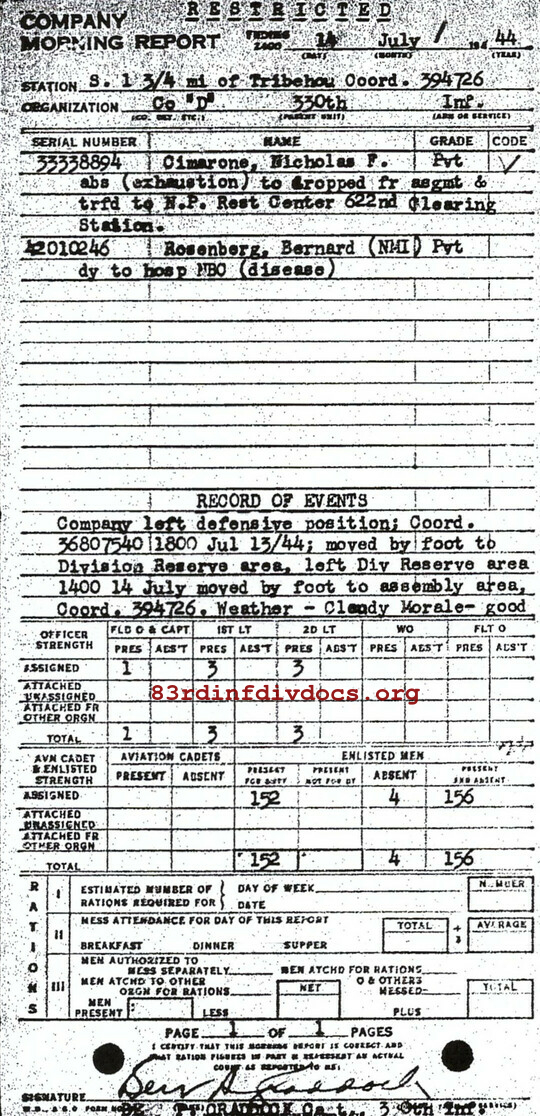 RESTRICTED
COMPANY
MORNING REPORT ENDING 2400 14 July 1944
(DAY) (MONTH) (YEAR)
STATION S. 1 3/4 mi of Tribehou Coord. 394726
ORGANIZATION Co "D" 330th Inf.
(CO. DET. ETC.) (PARENT UNIT) (ARM OR SERVICE)
SERIAL NUMBER NAME GRADE CODE
33338894 Cimarone, Nicholas F. Pvt ✓
abs (exhaustion) to dropped fr asgmt &
trfd to N.P. Rest Center 622nd Clearing
Station.
42010246 Rosenberg, Bernard (NMI) Pvt
dy to hosp NBC (disease)
RECORD OF EVENTS
Company left defensive position; Coord.
36807540 1800 Jul 13/44; moved by foot to
Division Reserve area, left Div Reserve area
1400 14 July moved by foot to assembly area,
Coord. 394726. Weather - Cloudy Morale- good
OFFICER STRENGTH FLD O & CAPT 1ST LT 2D LT WO FLT O
PRES ABS'T PRES ABS'T PRES ABS'T PRES ABS'T PRES ABS'T
ASSIGNED 1 3 3
ATTACHED UNASSIGNED
83rdinfdivdocs.org
ATTACHED FR OTHER ORGN
TOTAL 1 3 3
AVN CADET & ENLISTED STRENGTH AVIATION CADETS ENLISTED MEN
PRESENT ABSENT PRESENT FOR DUTY PRESENT NOT FOR DY ABSENT PRESENT AND ABSENT
ASSIGNED 152 4 156
ATTACHED UNASSIGNED
ATTACHED FR OTHER ORGN
TOTAL 152 4 156
RATIONS
I ESTIMATED NUMBER OF RATIONS REQUIRED FOR { DAY OF WEEK NUMBER
DATE
II MESS ATTENDANCE FOR DAY OF THIS REPORT TOTAL ÷ 3 AVERAGE
BREAKFAST DINNER SUPPER
III MEN AUTHORIZED TO MESS SEPARATELY MEN ATCHD FOR RATIONS
MEN ATCHD TO OTHER ORGN FOR RATIONS NET & OTHERS MESSED TOTAL
MEN PRESENT LESS PLUS
PAGE 1 OF 1 PAGES
I CERTIFY THAT THIS MORNING REPORT IS CORRECT AND
THAT RATION FIGURES IN PART II REPRESENT AN ACTUAL
COUNT AS REPORTED TO ME:
SIGNATURE
CRADDOCK